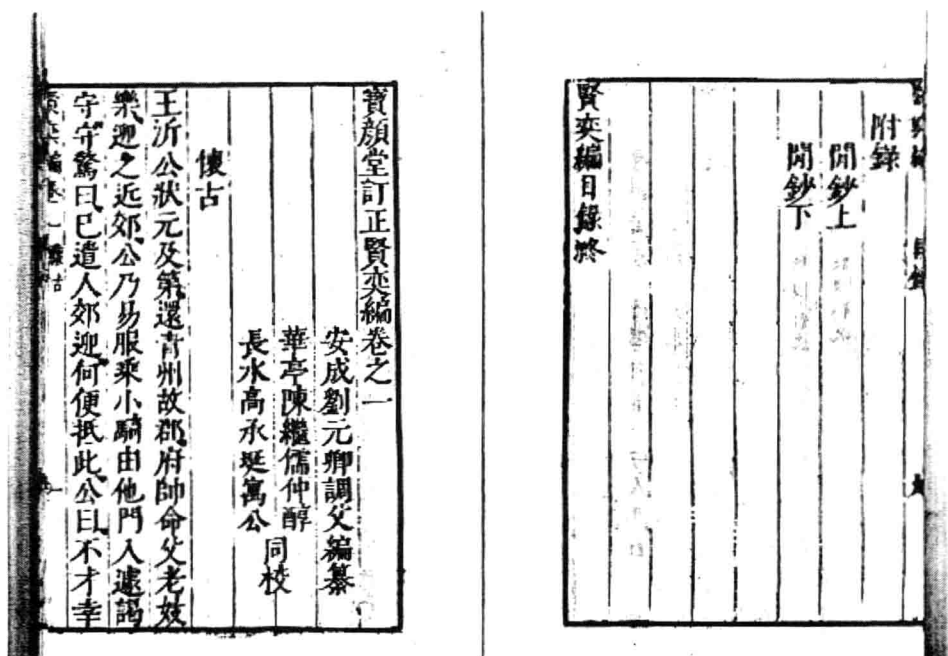 附錄
閒鈔上
閒鈔下
賢奕編目錄終
寶顏堂訂正賢奕編卷之一
安成劉元卿調父編纂
華亭陳繼儒仲醇
長水高承埏寓公
同校
懷古
王沂公狀元及第還青州故郡府帥命父老妓
樂迎之近郊公乃易服乘小騎由他門入遽謁
守守驚曰巳遣人郊迎何便抵此公曰不才幸
賢奕編卷一 懷古